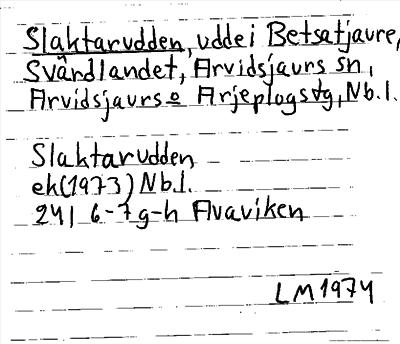 Slaktarudden, udde i Betsatjaure,
Svärdlandet, Arvidsjaurs sn,
Arvidsjaurs o Arjeplogs tg, Nb.l.
Slaktarudden
ek (1973) Nb.l.
24I 6-7g-h Avaviken
LM 1974